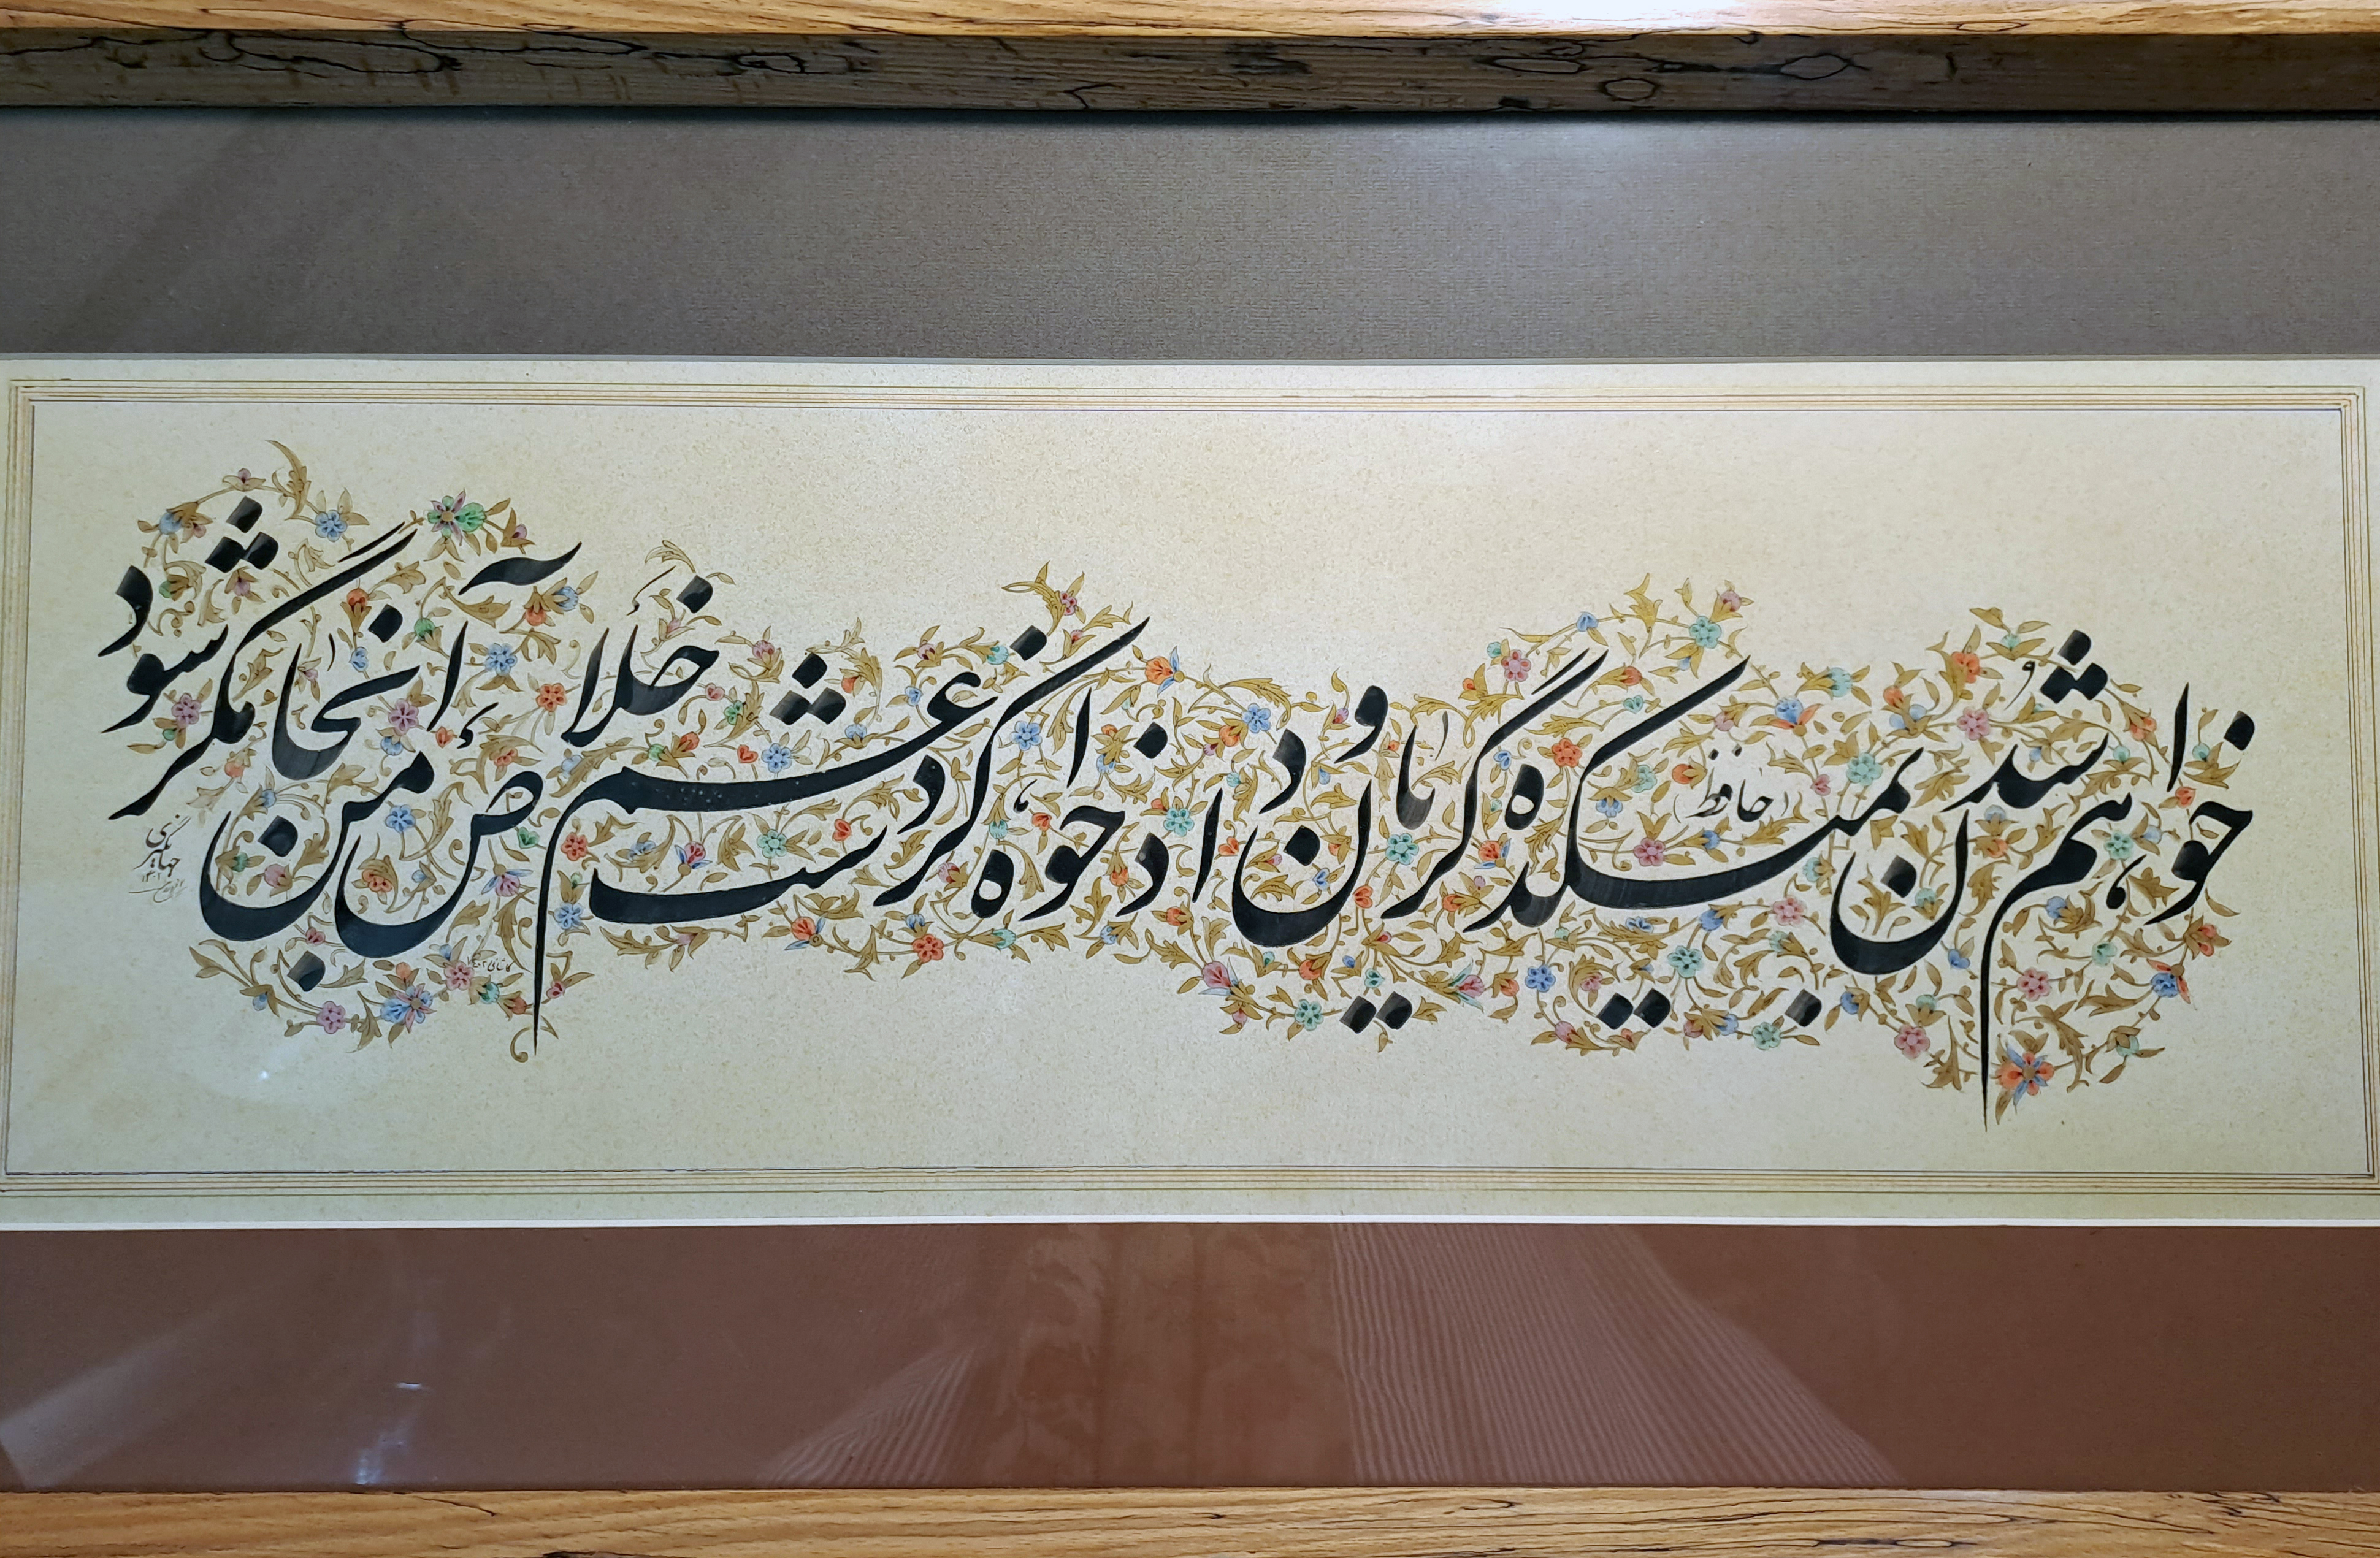 خواهم شدن بمیکده گریان و دادخواه کز دست غم خلاص من آنجا مگر شود
حافظ